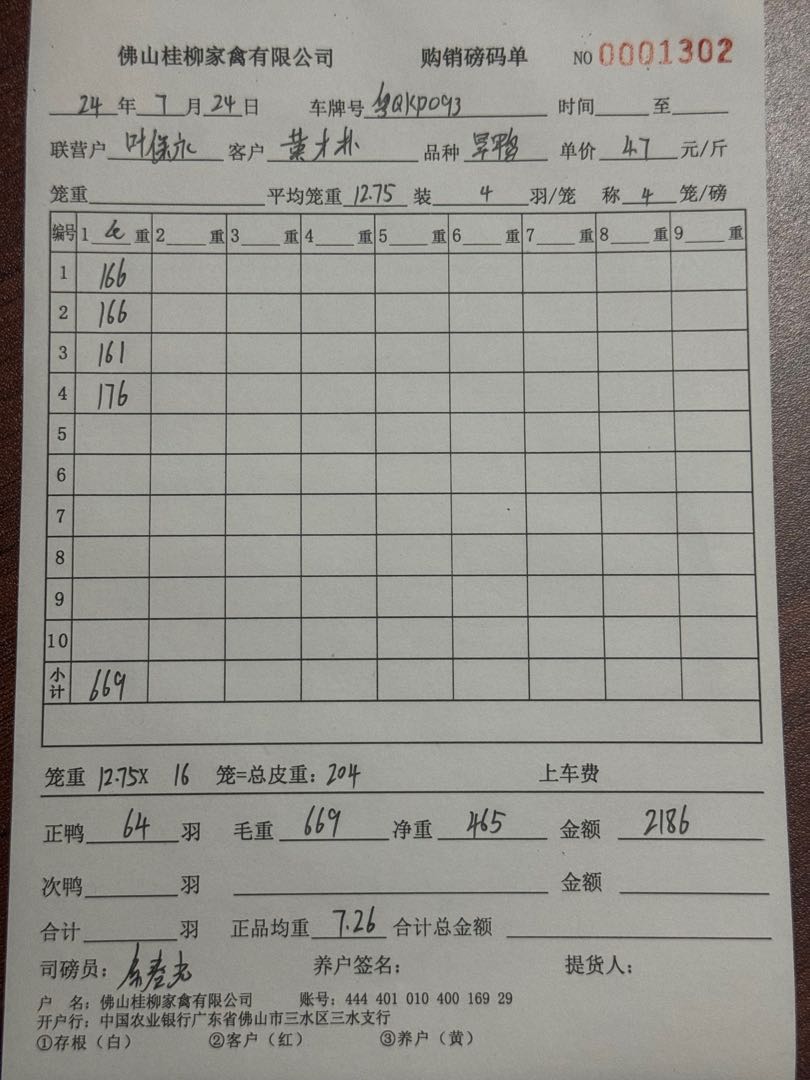 佛山桂柳家禽有限公司 购销磅码单 NO 0001302
24 年 7 月 24 日 车牌号 粤QKP093 时间 至
联营户 叶保永 客户 叶才朴 品种 旱鸭 单价 4.7 元/斤
笼重 平均笼重 12.75 装 4 羽/笼 称 4 笼/磅
编号 1 毛 重 2 重 3 重 4 重 5 重 6 重 7 重 8 重 9 重
1 166
2 166
3 161
4 176
5
6
7
8
9
10
小计 669
笼重 12.75X 16 笼=总皮重: 204 上车费
正鸭 64 羽 毛重 669 净重 465 金额 2186
次鸭 羽 金额
合计 羽 正品均重 7.26 合计总金额
司磅员: 养户签名: 提货人:
户 名: 佛山桂柳家禽有限公司 账号: 444 401 010 400 169 29
开户行: 中国农业银行广东省佛山市三水区三水支行
①存根（白） ②客户（红） ③养户（黄）